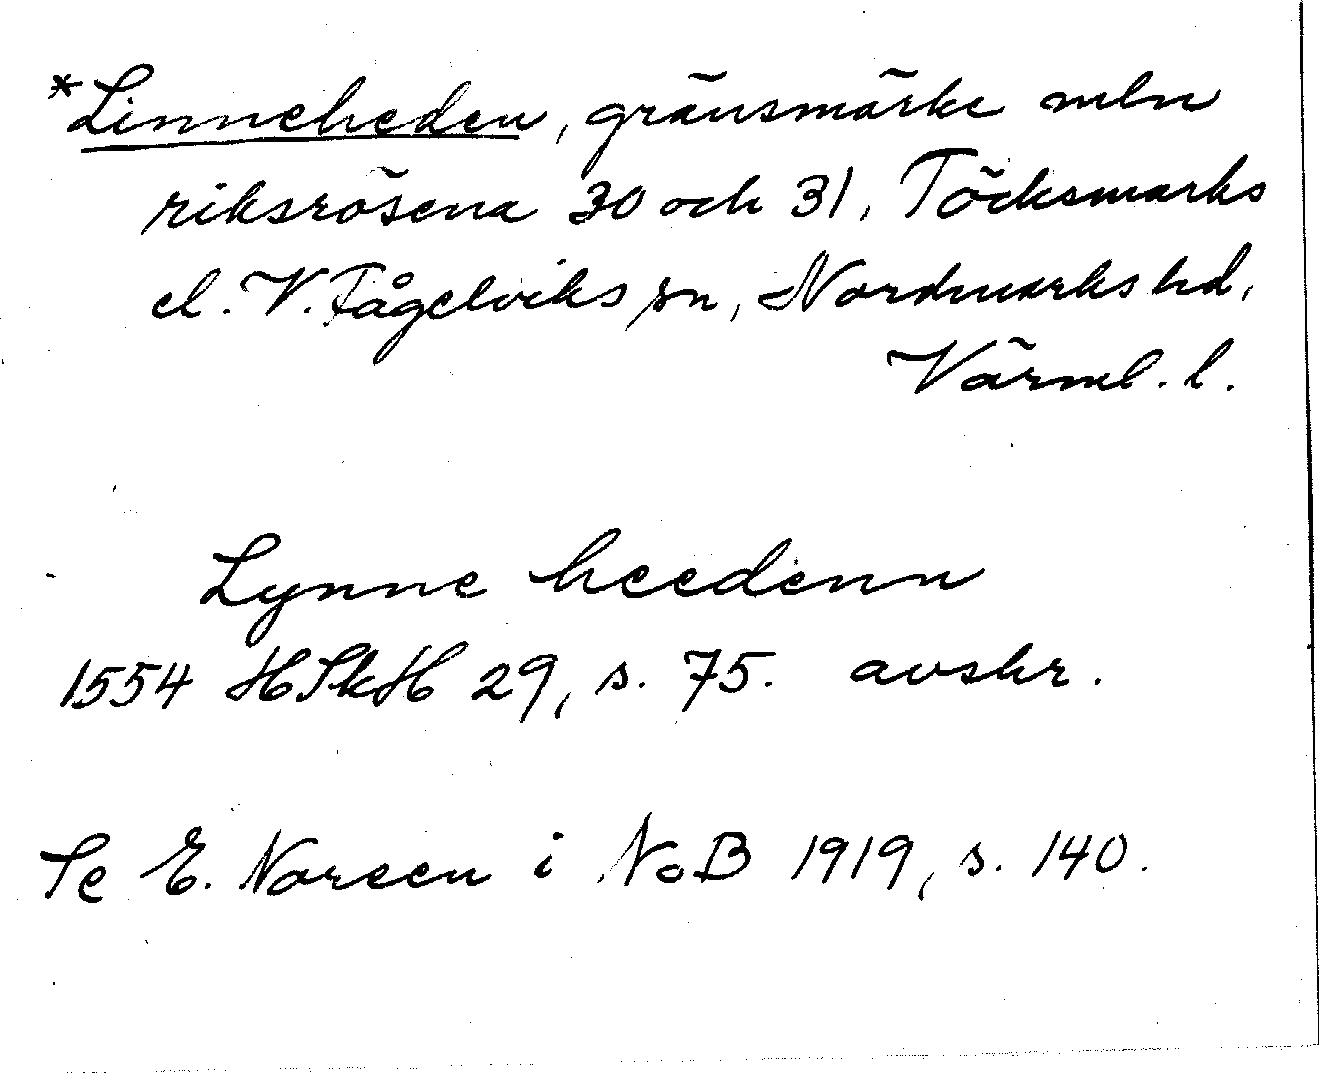 *Linneheden, gränsmärke mln
riksrösena 30 och 31, Töcksmarks
el. V. Fågelviks sn, Nordmarks hd,
Värml. l.
Lynne heedenn
1554 HSkH 29, s. 75. avskr.
Se E. Noreen i NoB 1919, s. 140.